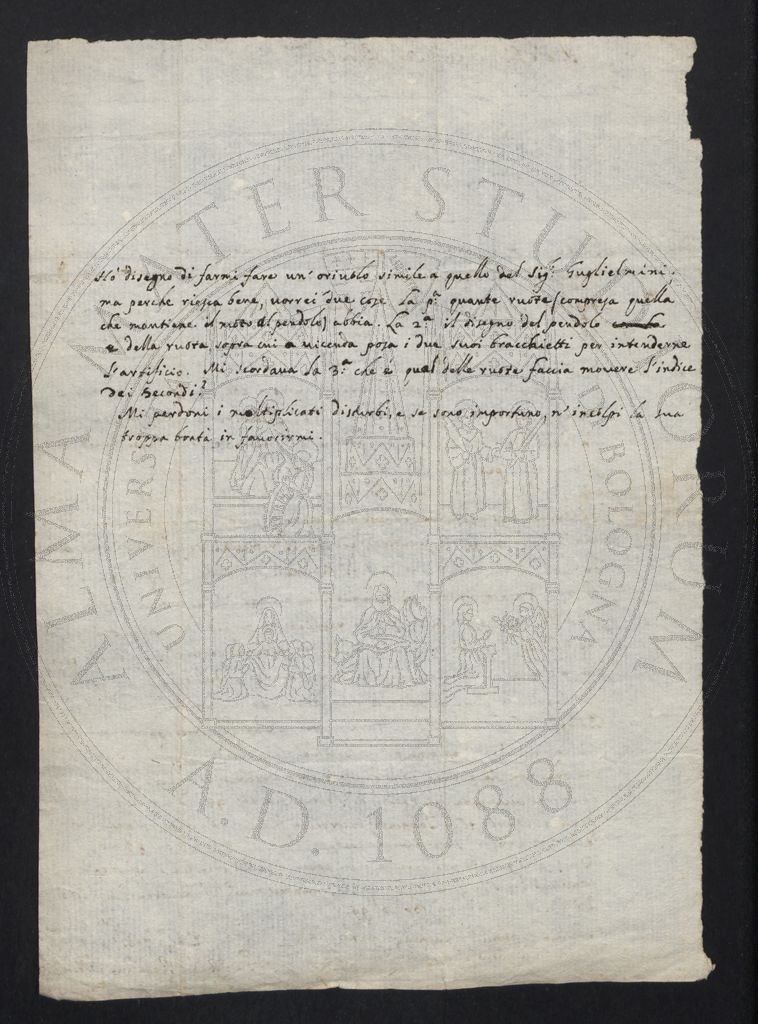 Hó disegno di farmi fare un' oriuolo simile a quello del Sig.r Guglielmini,
ma perche riesca bene, uorrei due cose. La p.a quante ruote (compresa quella
che mantiene il moto al pendolo) abbia. La 2.a il disegno del pendolo
e della ruota sopra cui a uicenda posa i due suoi bracchietti per intenderne
l'artificio. Mi scordaua la 3.a che è qual' delle ruote faccia mouere l'indice
dei Secondi?
Mi perdoni i moltiplicati disturbi, e se sono importuno, n' incolpi la sua
troppa bontà in fauorirmi.
ALMA MATER STUDIORUM
UNIVERS BOLOGNA
A.D. 1088